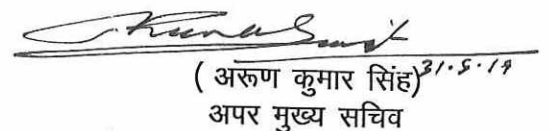 ( अरूण कुमार सिंह) 31.5.19
अपर मुख्य सचिव